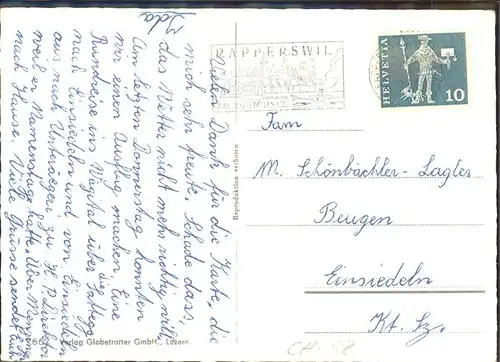 Vielen Dank für die Karte, die
mich sehr freute. Schade dass,
das Mutter nicht mehr richtig will.
Am letzten Donnerstag konnten
wir einen Ausflug machen. Eine
Rundreise ins Wägital über die Sattelegg
nach Einsiedeln und von Einsiedeln
aus nach Unterägeri zu H. P. Direktor
weil er Namenstag hatte. Über
nach Hause. Viele Grüsse sendet
Ida
Verlag Globetrotter GmbH., Luzern
Reproduktion verboten
RAPPERSWIL
HELVETIA
10
Fam
M. Schönbächler-Lagler
Beugen
Einsiedeln
Kt. Sz.